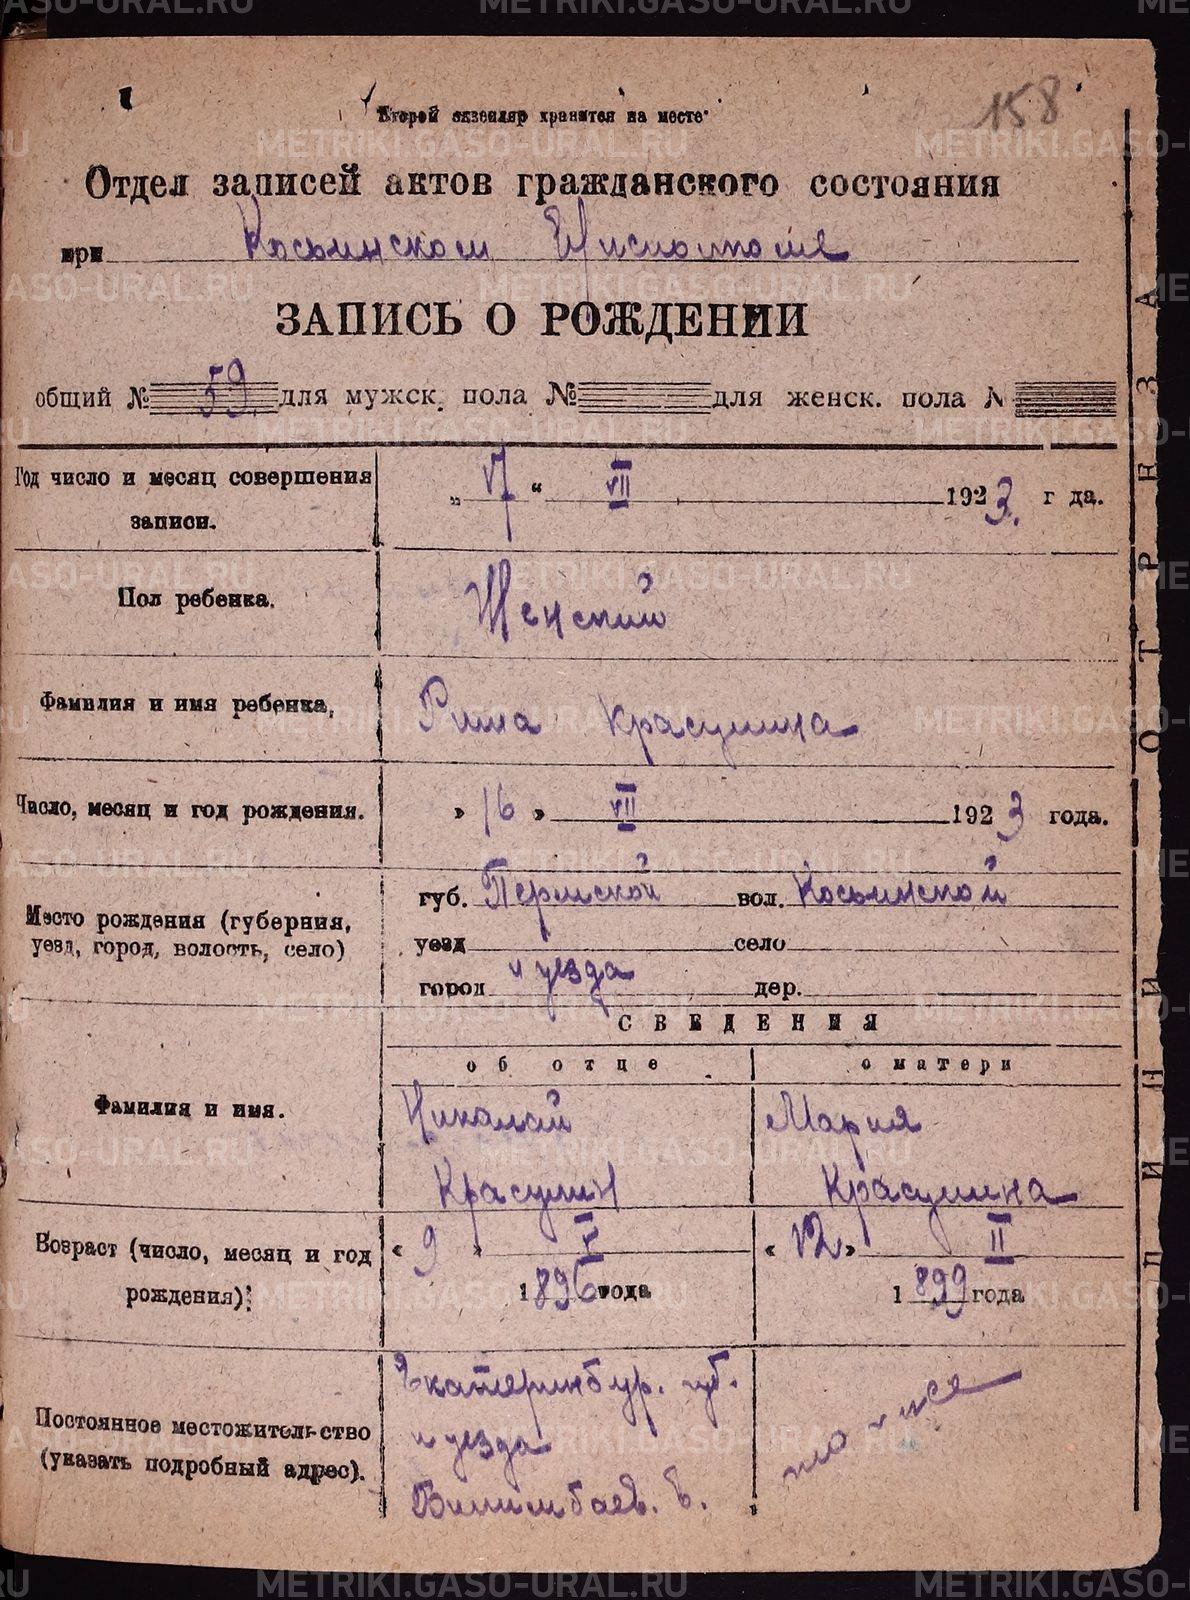 158
Второй экземляр хранится на месте
Отдел записей актов гражданского состояния
при Косьинском Исполкоме
ЗАПИСЬ О РОЖДЕНИИ
общий № 59 для мужск. пола № для женск. пола №
Год число и месяц совершения записи.
„ 17 “ VII 1923. г да.
Пол ребенка.
Женский
Фамилия и имя ребенка,
Рима Красулина
Число, месяц и год рождения.
» 16 » VII 1923 года.
Место рождения (губерния, уезд, город, волость, село)
губ. Пермской вол. Косьинской
уезд село
город и уезда дер.
СВЕДЕНИЯ
об отце о матери
Фамилия и имя.
Николай Мария
Красулин Красулина
Возраст (число, месяц и год рождения):
« 9 » V « 12 » II
1896 года 1899 года
Постоянное местожительство (указать подробный адрес).
Екатеринбур. губ.
и уезда
Билимбаев. в.
то же
ОТРЕЗА ЛИНИЯ
METRIKI.GASO-URAL.RU